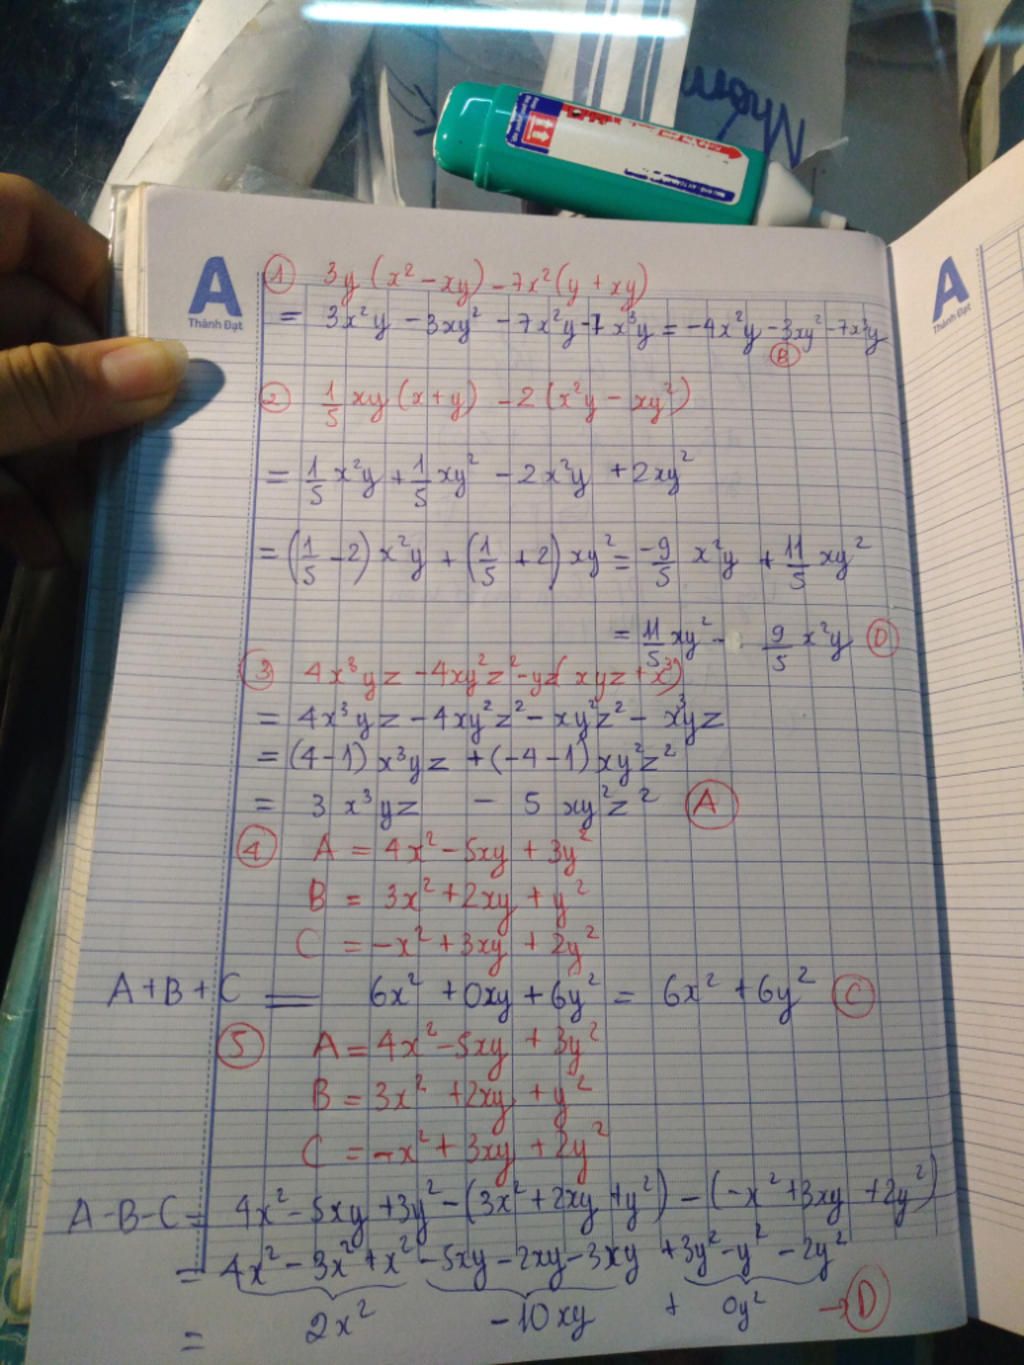 Nhóm
A
Thành Đạt
A
Thành Đạt
① 3y(x² - xy) - 7x²(y + xy)
= 3x²y - 3xy² - 7x²y - 7x³y = -4x²y - 3xy² - 7x³y
Ⓑ
② 1/5 xy(x+y) - 2(x²y - xy²)
= 1/5 x²y + 1/5 xy² - 2x²y + 2xy²
= (1/5 - 2) x²y + (1/5 + 2) xy² = -9/5 x²y + 11/5 xy²
= 11/5 xy² - 9/5 x²y Ⓓ
③ 4x³yz - 4xy²z² - yz(xyz + x³)
= 4x³yz - 4xy²z² - xy²z² - x³yz
= (4-1) x³yz + (-4-1) xy²z²
= 3x³yz - 5xy²z² Ⓐ
④ A = 4x² - 5xy + 3y²
B = 3x² + 2xy + y²
C = -x² + 3xy + 2y²
A+B+C = 6x² + 0xy + 6y² = 6x² + 6y² Ⓒ
⑤ A = 4x² - 5xy + 3y²
B = 3x² + 2xy + y²
C = -x² + 3xy + 2y²
A-B-C = 4x² - 5xy + 3y² - (3x² + 2xy + y²) - (-x² + 3xy + 2y²)
= 4x² - 3x² + x² - 5xy - 2xy - 3xy + 3y² - y² - 2y²
= 2x² - 10xy + 0y² → Ⓓ